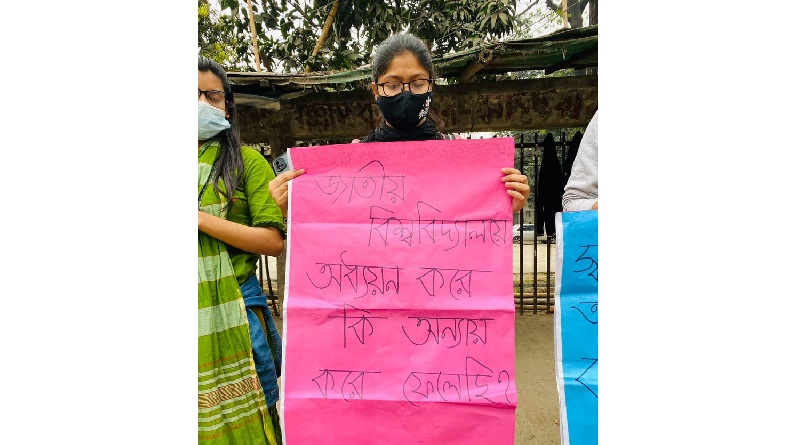 জাতীয়
বিশ্ববিদ্যালয়ে
অধ্যয়ন করে
কি অন্যায়
করে ফেলেছি?